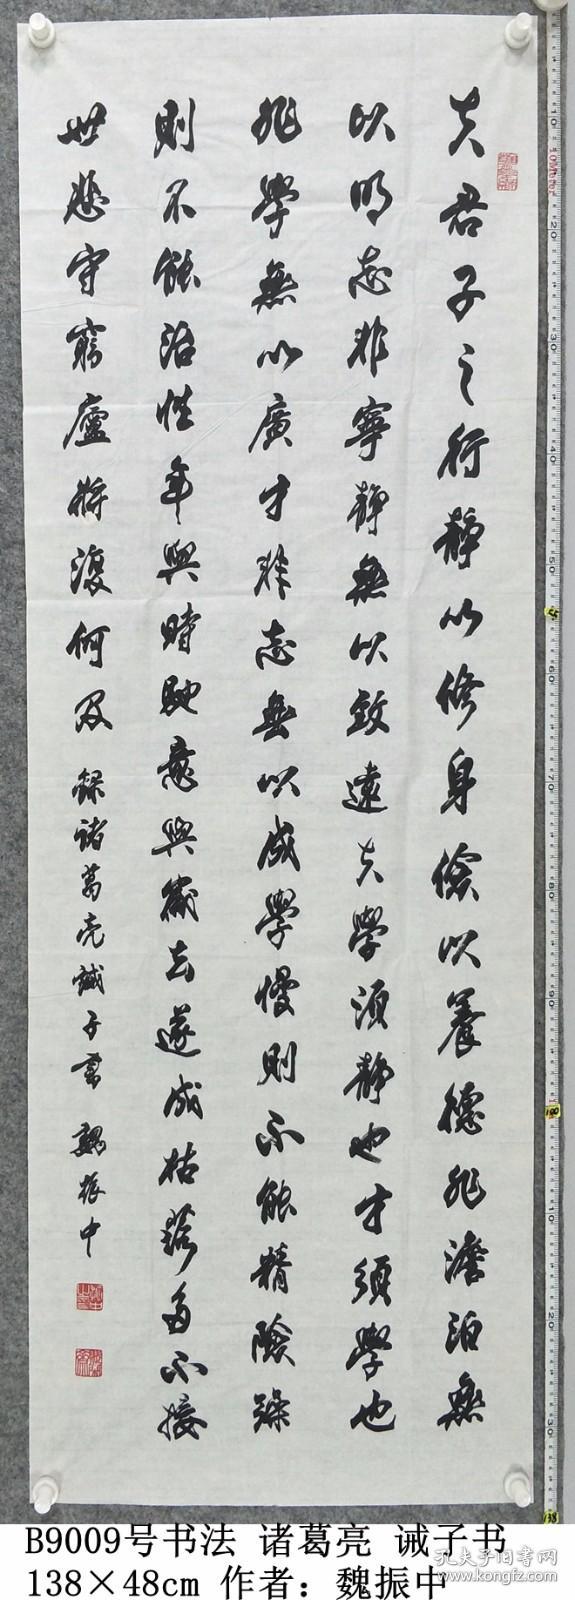 夫君子之行靜以修身儉以養德非澹泊無
以明志非寧靜無以致遠夫學須靜也才須學也
非學無以廣才非志無以成學慢則不能精險躁
則不能治性年與時馳意與歲去遂成枯落多不接
世悲守窮廬將復何及 錄諸葛亮誡子書 魏振中
B9009号书法 诸葛亮 诫子书
138×48cm 作者：魏振中
孔夫子旧书网
www.kongfz.com